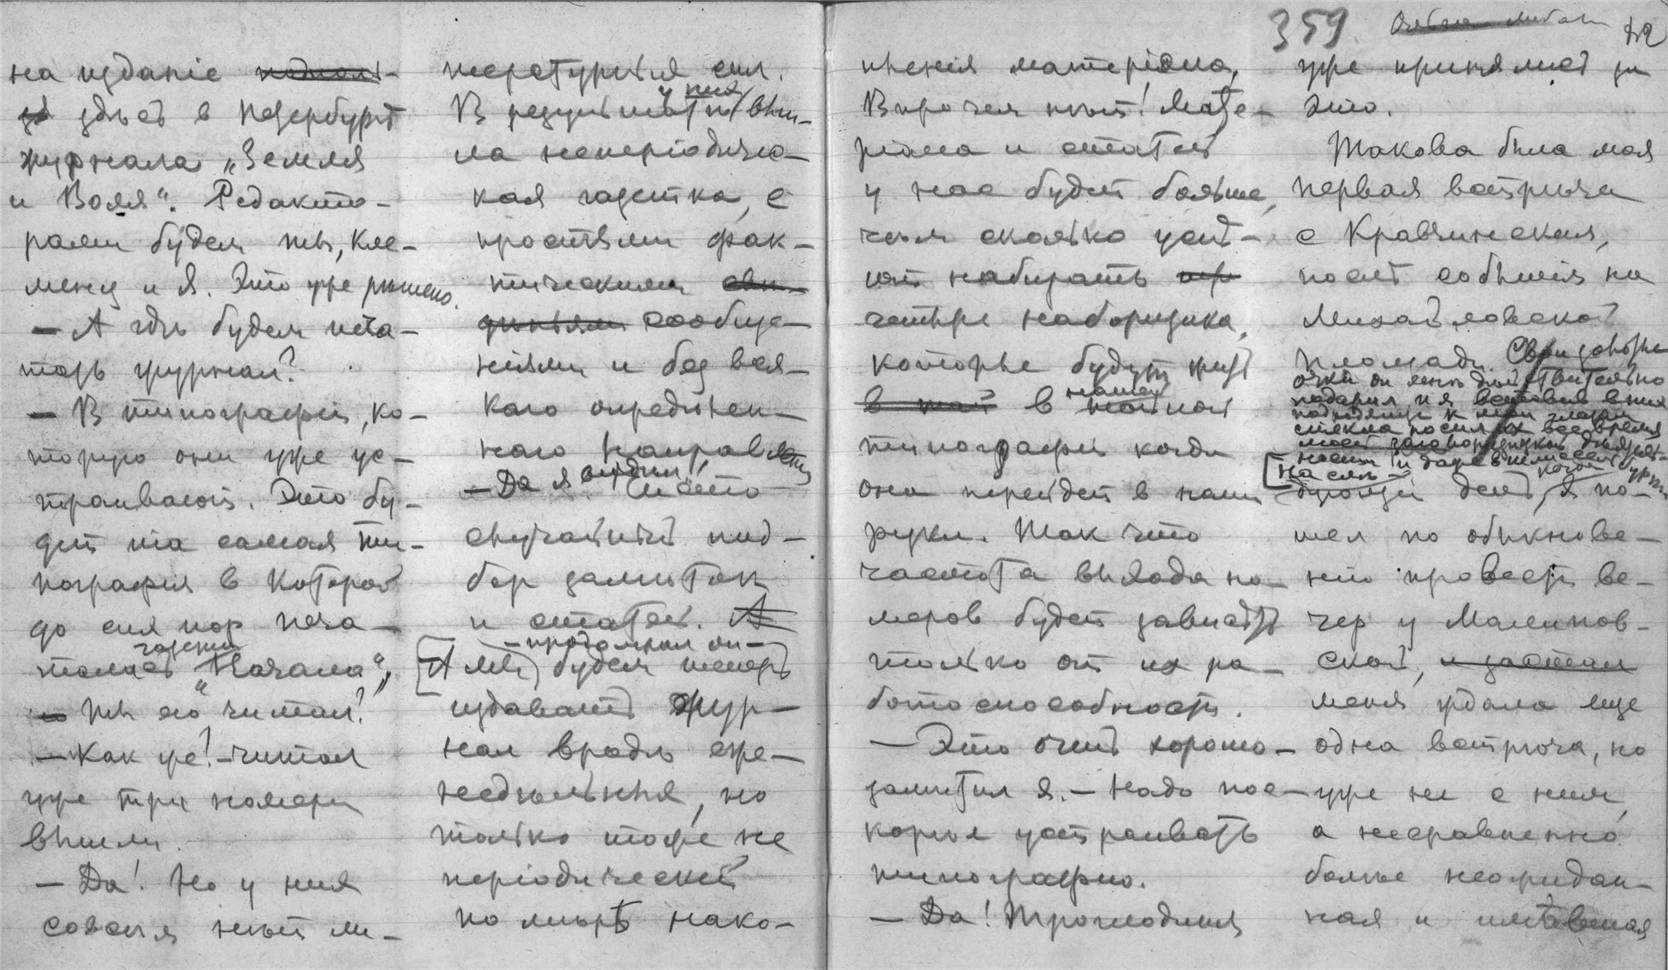 на изданіе
здѣсь в Петербургѣ
журнала „Земля
и Воля“. Редакто-
рами будем ты, Кле-
менц и я. Это уже рѣшено.
— А гдѣ будем печа-
тать журнал?
— В типографіи, ко-
торую они уже ус-
траивают. Это бу-
дет та самая ти-
пографія в которой
до сих пор печа-
талась газета „Начало“,
ты его читал?
— Как же? — читал
уже три номера
вышли.
— Да! Но у них
совсем нѣт ли-
тературных сил.
В результатѣ у них вы-
ла неперіодичес-
кая газетка, с
простыми фак-
тическими
сообще-
ніями и без вся-
каго опредѣлен-
наго направленія
— Да я видѣл! Чисто
случайный под-
бор замѣток
и статей.
— продолжал он —
А мы будем теперь
издавать жур-
нал вродѣ еже-
недѣльных, но
только тоже не
періодическій
по мѣрѣ нако-
пленія матеріала.
Впрочем нѣт! Мате-
ріала и статей
у нас будет больше,
чѣм сколько успѣ-
ют набирать
четыре наборщика,
которые будут жить
в нашей тайной
типографіи когда
она перейдет в наши
руки. Так что
частота выхода но-
меров будет зависѣть
только от их ра-
ботоспособности.
— Это очень хорошо —
замѣтил я. — Надо пос-
корѣе устраивать
типографію.
— Да! Трощанскій
359
уже принялись за
это.
Такова была моя
первая встрѣча
с Кравчинским,
послѣ событія на
Михайловской
площади.
очки он мнѣ дѣйствительно
подарил и я вставив в них
подходящія к моим глазам
стекла носил их все время
На слѣ-
дующій день, я по-
шел по обыкнове-
нію провести ве-
чер у Малинов-
ской,
меня ждала еще
одна встрѣча, но
уже не с ним,
а несравненно
болѣе неожидан-
ная и имѣвшая